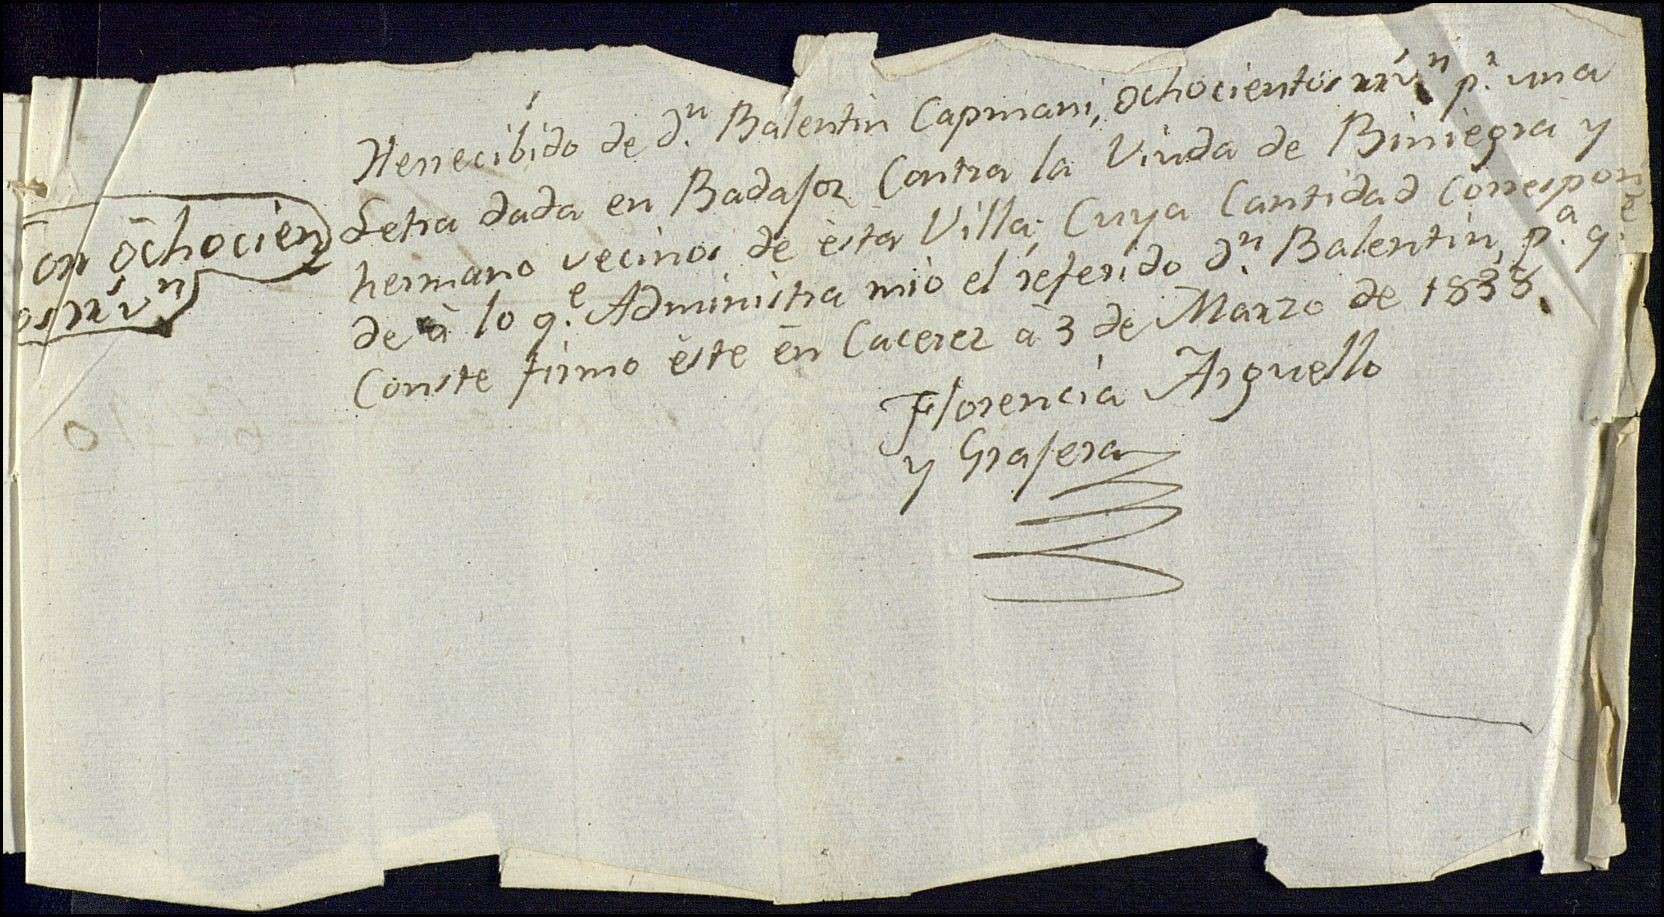 on ochocien
os rrs vn
He rrecibido de dn. Balentin Capmani, ochocientos rrs vn pr. una
Letra dada en Badajoz Contra la Viuda de Biniegra y
hermano vecinos de èsta Villa; Cuya Cantidad Correspon
de à lo qe. Administra mio el referido dn. Balentin, pa. qe.
Conste firmo èste èn Cacerez à 3 de Marzo de 1838.
Florencia Arguello
y Grajera